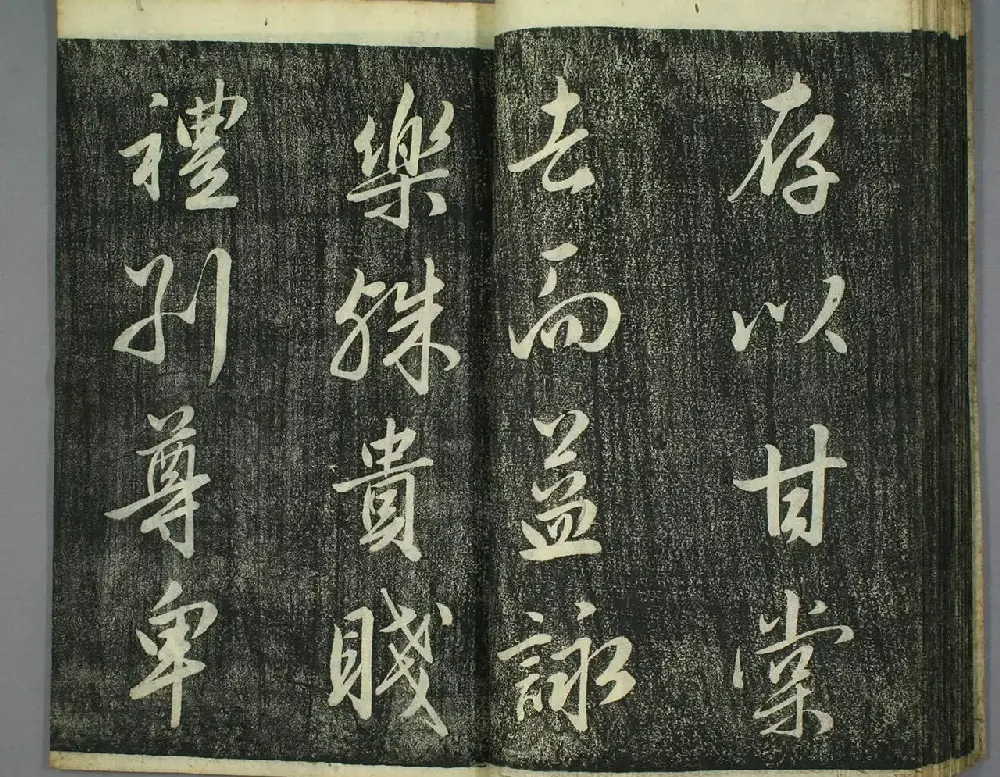 存以甘棠
去而益詠
樂殊貴賤
禮別尊卑